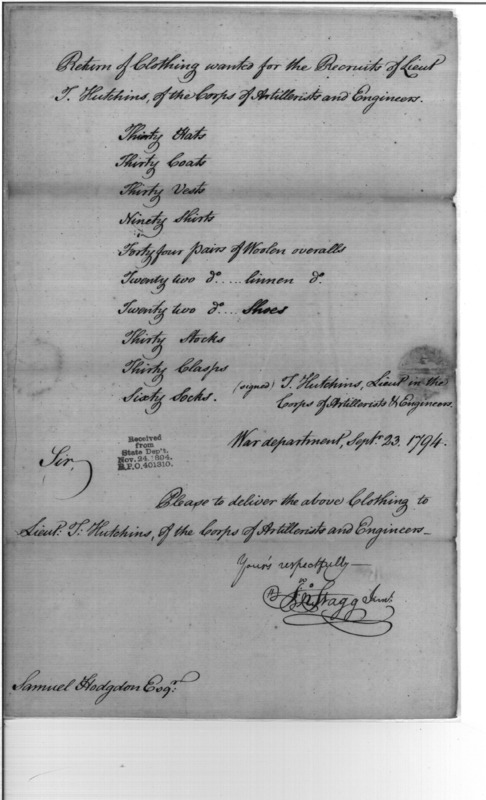 Return of Clothing wanted for the Recruits of Lieut
T. Hutchins, of the Corps of Artillerists and Engineers.
Thirty Hats
Thirty Coats
Thirty Vests
Ninety Shirts
Forty four pairs of Woolen overalls
Twenty two do..... linnen do.
Twenty two do.... Shoes
Thirty Stocks
Thirty Clasps
Sixty Socks.
(signed) T. Hutchins, Lieut in the
Corps of Artillerists & Engineers.
War department, Septr. 23. 1794.
Received
from
State Dep't.
Nov. 24, 1894.
R.P.O. 401310.
Sir,
Please to deliver the above Clothing to
Lieut: T: Hutchins, of the Corps of Artillerists and Engineers—
Your's respectfully—
Jno Stagg Junr.
Samuel Hodgdon Esqr.